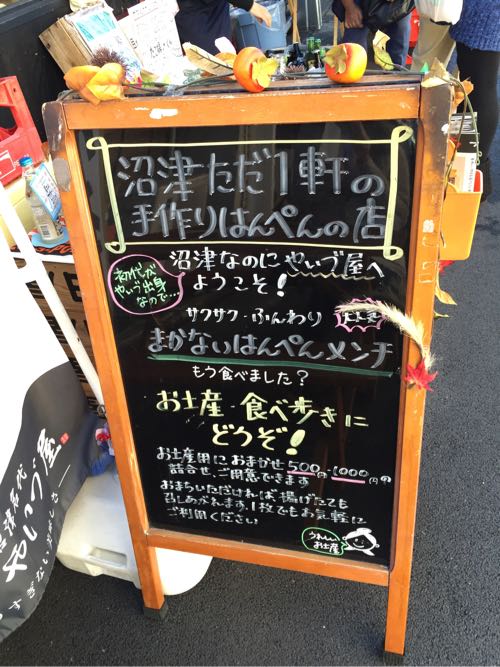 沼津ただ1軒の
手作りはんぺんの店
沼津なのにやいづ屋へ
ようこそ!
初代が
やいづ出身
なので…
サクサク・ふんわり
まかないはんぺんメンチ
もう食べました?
お土産・食べ歩きに
どうぞ!
お土産用におまかせ500円・1000円の
詰合せ、ご用意できます
おまちいただければ、揚げたても
召しあがれます、1枚でもお気軽に
ご利用ください
うれしい
お土産